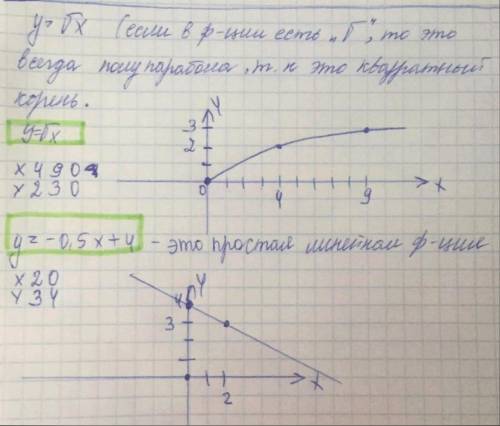 y=√x (если в ф-ции есть „√", то это
всегда полупарабола, т. к это квадратный
корень.
y=√x
x 4 9 0
y 2 3 0
Y
3
2
0
4
9
X
y = -0,5x+4 - это простая линейная ф-ция
x 2 0
y 3 4
Y
4
3
2
X